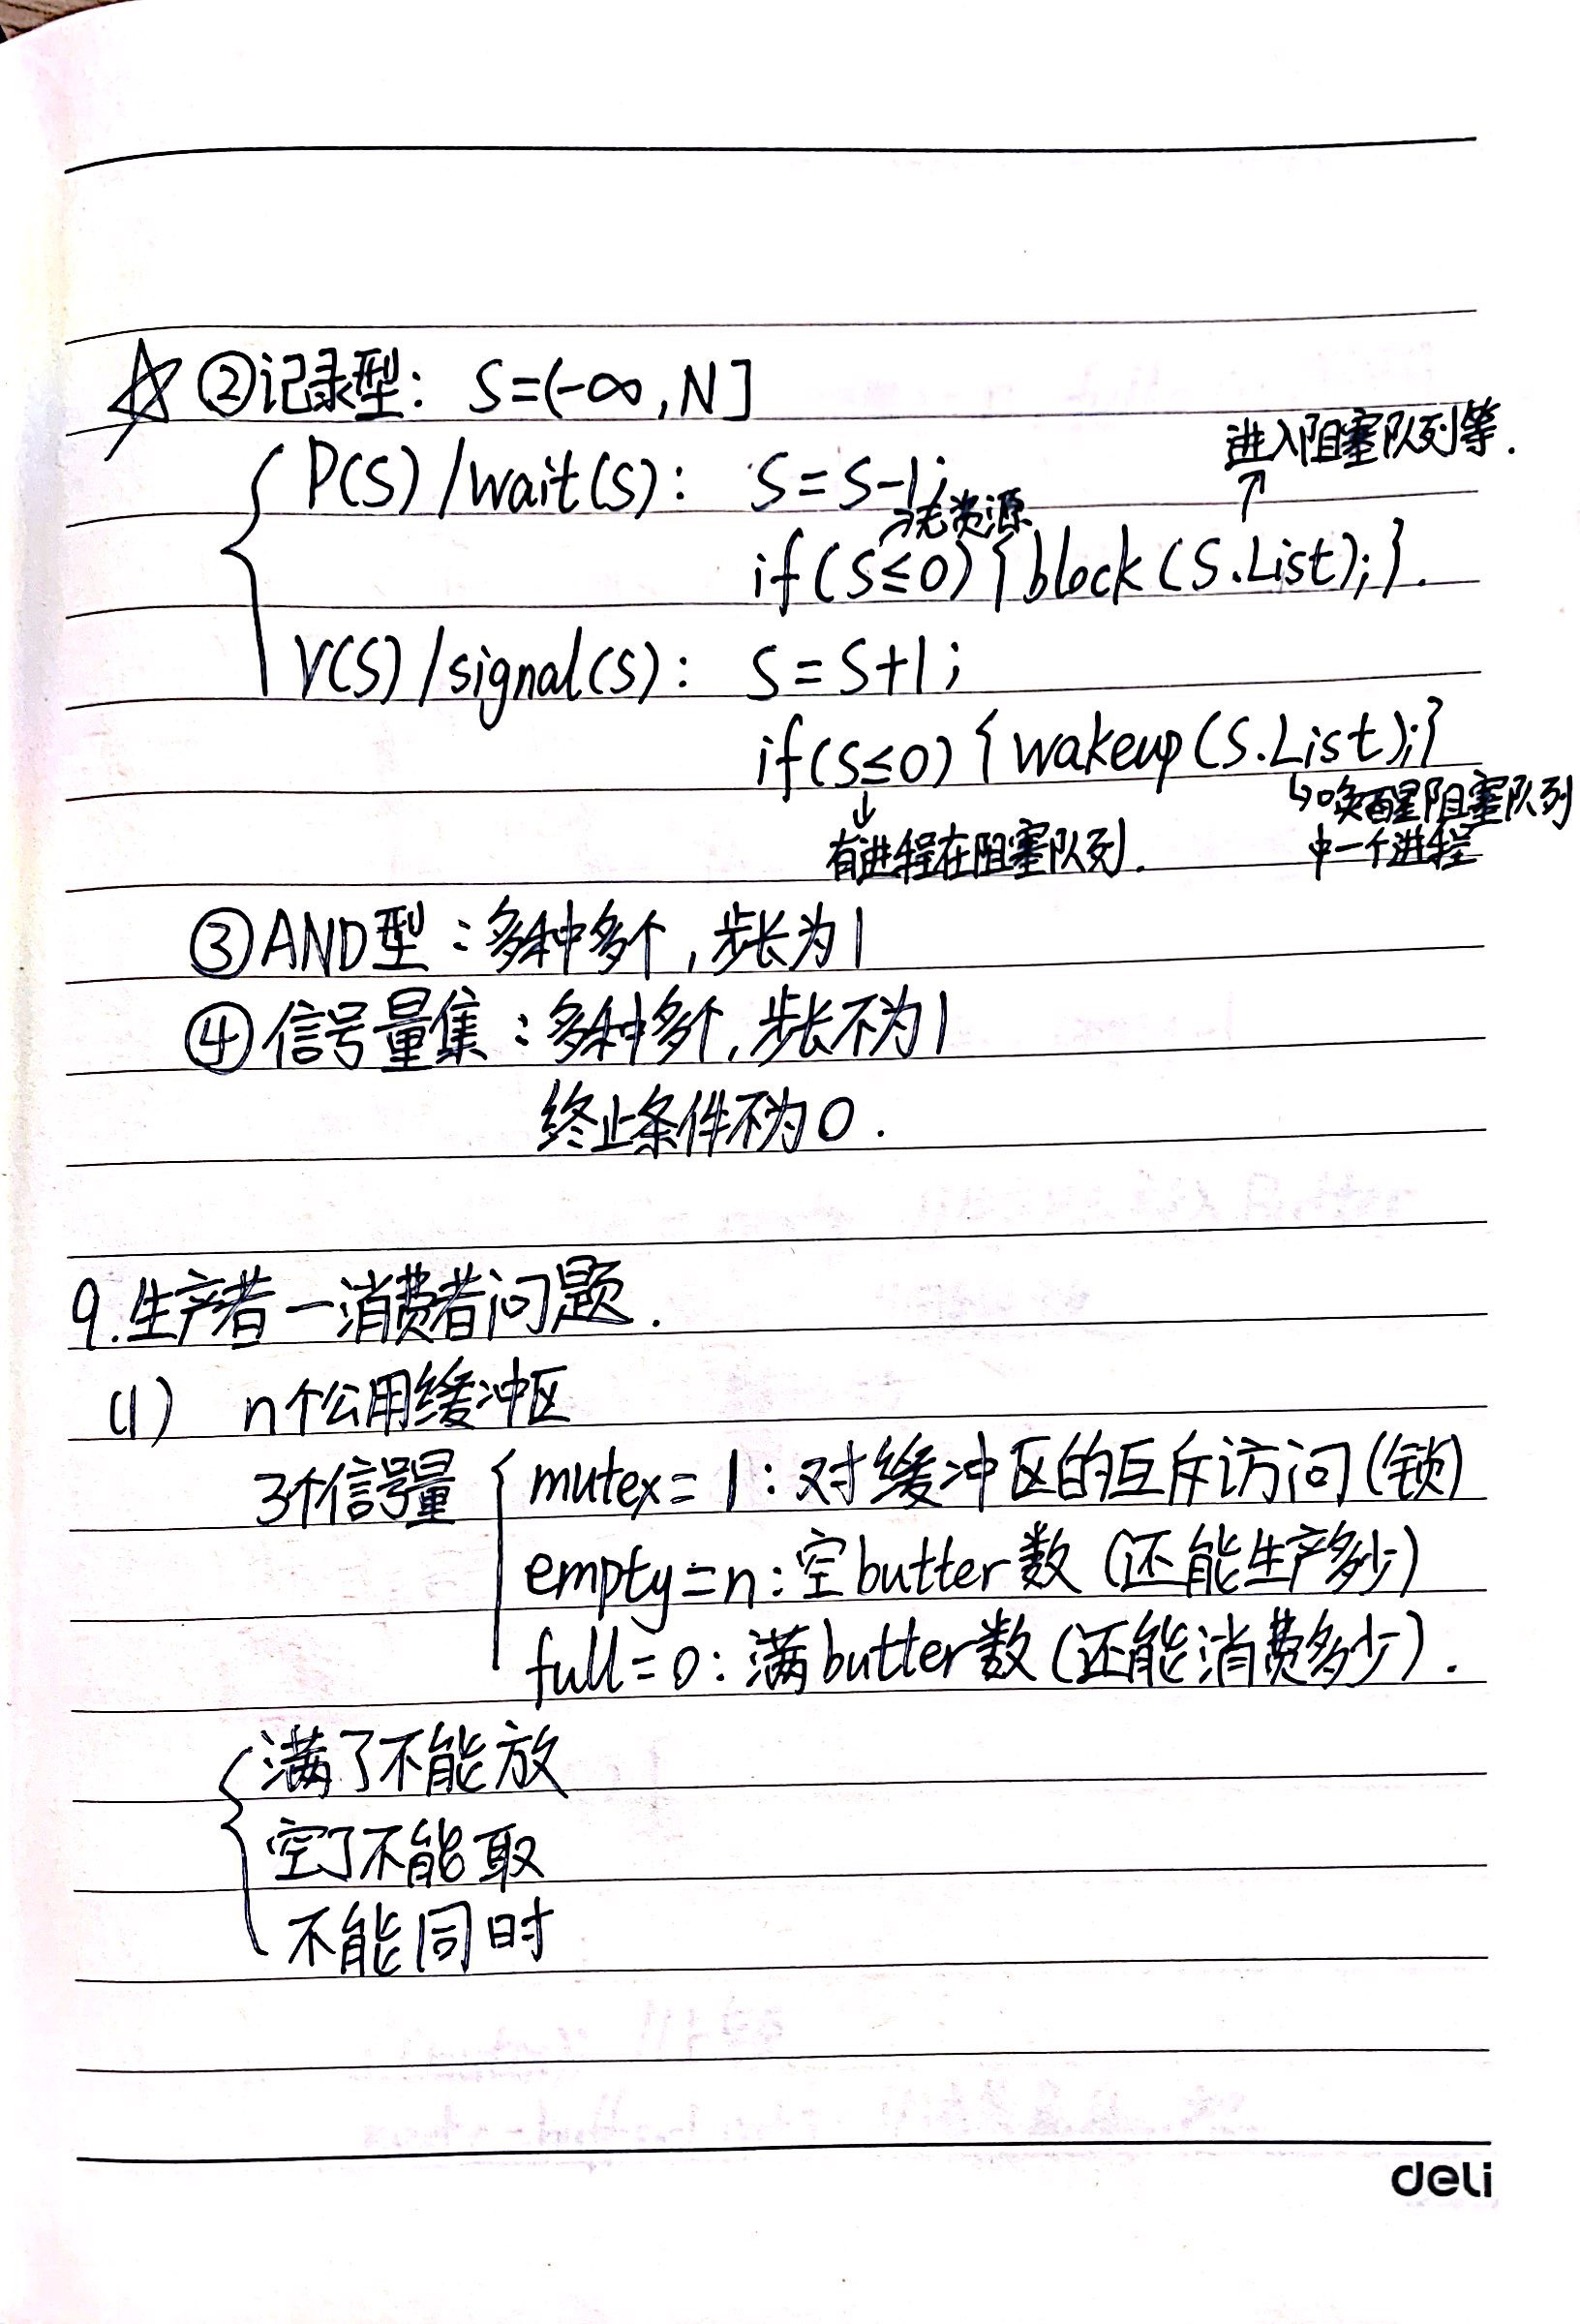 ☆ ②记录型: S=(-∞,N]
进入阻塞队列等.
↑
{ P(S)/wait(S): S=S-1;
→无资源
if(S≤0){block(S.List);}.
V(S)/signal(S): S=S+1;
if(S≤0){wakeup(S.List);}
↓
↳唤醒阻塞队列
有进程在阻塞队列.
中一个进程
③AND型:多种多个,步长为1
④信号量集:多种多个,步长不为1
终止条件不为0.
9.生产者-消费者问题.
(1) n个公用缓冲区
3个信号量 { mutex=1:对缓冲区的互斥访问(锁)
empty=n:空butter数(还能生产多少)
full=0:满butter数(还能消费多少).
{ 满了不能放
空了不能取
不能同时
deli